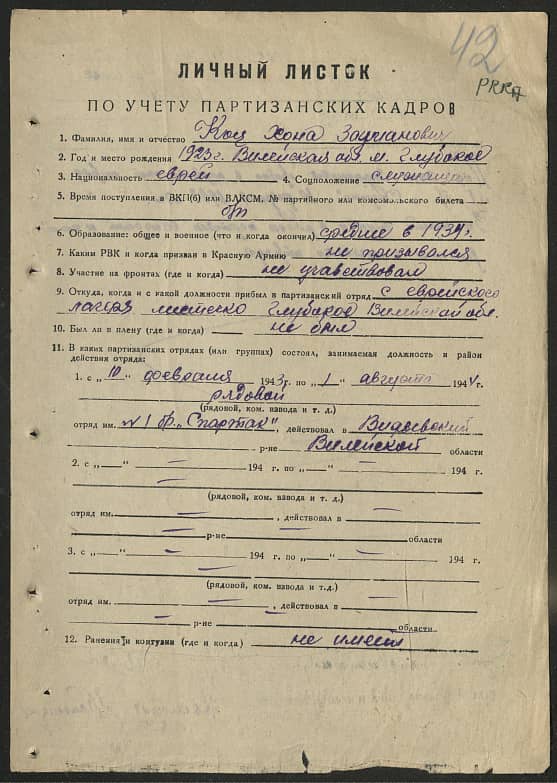 42
РККА
ЛИЧНЫЙ ЛИСТОК
ПО УЧЕТУ ПАРТИЗАНСКИХ КАДРОВ
1. Фамилия, имя и отчество Кац Хона
2. Год и место рождения 1923 г. Вилейская обл. м. Глубокое
3. Национальность еврей 4. Соцположение служащий
5. Время поступления в ВКП(б) или ВЛКСМ, № партийного или комсомольского билета
б/п
6. Образование: общее и военное (что и когда окончил) среднее в 1934 г.
7. Каким РВК и когда призван в Красную Армию не призывался
8. Участие на фронтах (где и когда) не участвовал
9. Откуда, когда и с какой должности прибыл в партизанский отряд с еврейского
лагеря местечко Глубокое Вилейской обл.
10. Был ли в плену (где и когда) не был
11. В каких партизанских отрядах (или группах) состоял, занимаемая должность и район
действия отряда:
1. с „10“ февраля 1943 г. по „1“ августа 1944 г.
рядовой
(рядовой, ком. взвода и т. д.)
отряд им. №1 бр. „Спартак“, действовал в Видзевский
р-не Вилейской области
2. с „—“ — 194 г. по „—“ — 194 г.
—
(рядовой, ком. взвода и т. д.)
отряд им. —, действовал в —
— р-не — области
3. с „—“ — 194 г. по „—“ — 194 г.
—
(рядовой, ком. взвода и т.д.)
отряд им. —, действовал в —
— р-не — области
12. Ранения и контузии (где и когда) не имеет